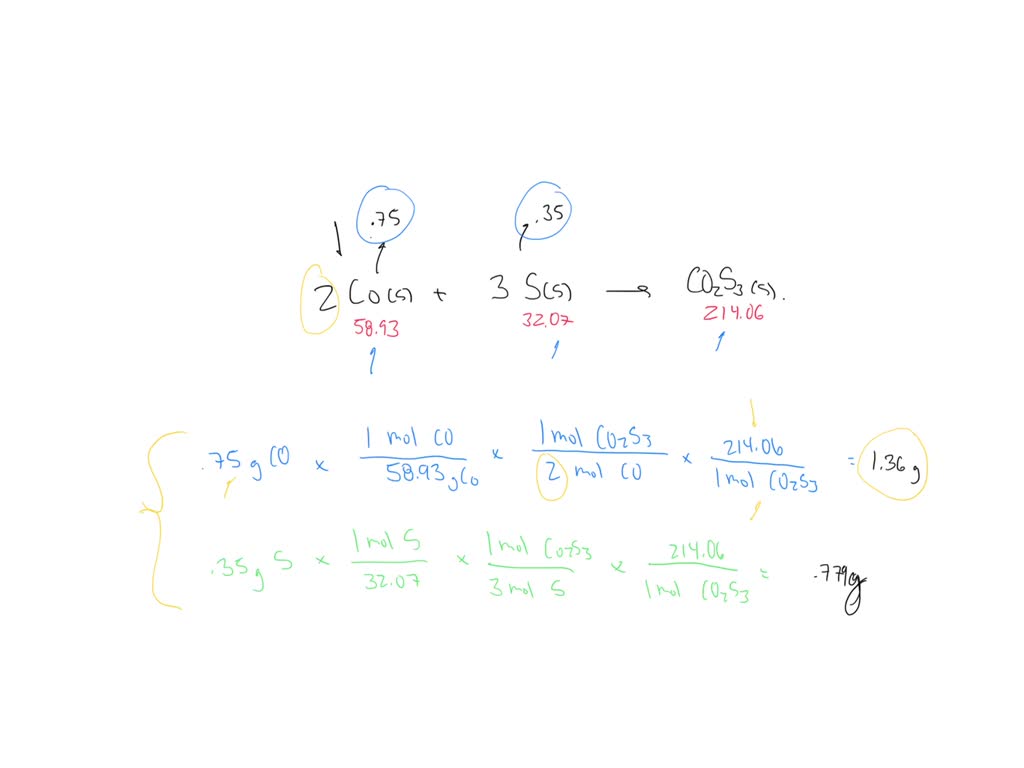 .75 .35
2 Co(s) + 3 S(s) → CO2S3(s).
58.93 32.07 214.06
.75 g CO × 1 mol CO / 58.93 g Co × 1 mol CO2S3 / 2 mol CO × 214.06 / 1 mol CO2S3 = 1.36 g
.35 g S × 1 mol S / 32.07 × 1 mol CO2S3 / 3 mol S × 214.06 / 1 mol CO2S3 = .779g